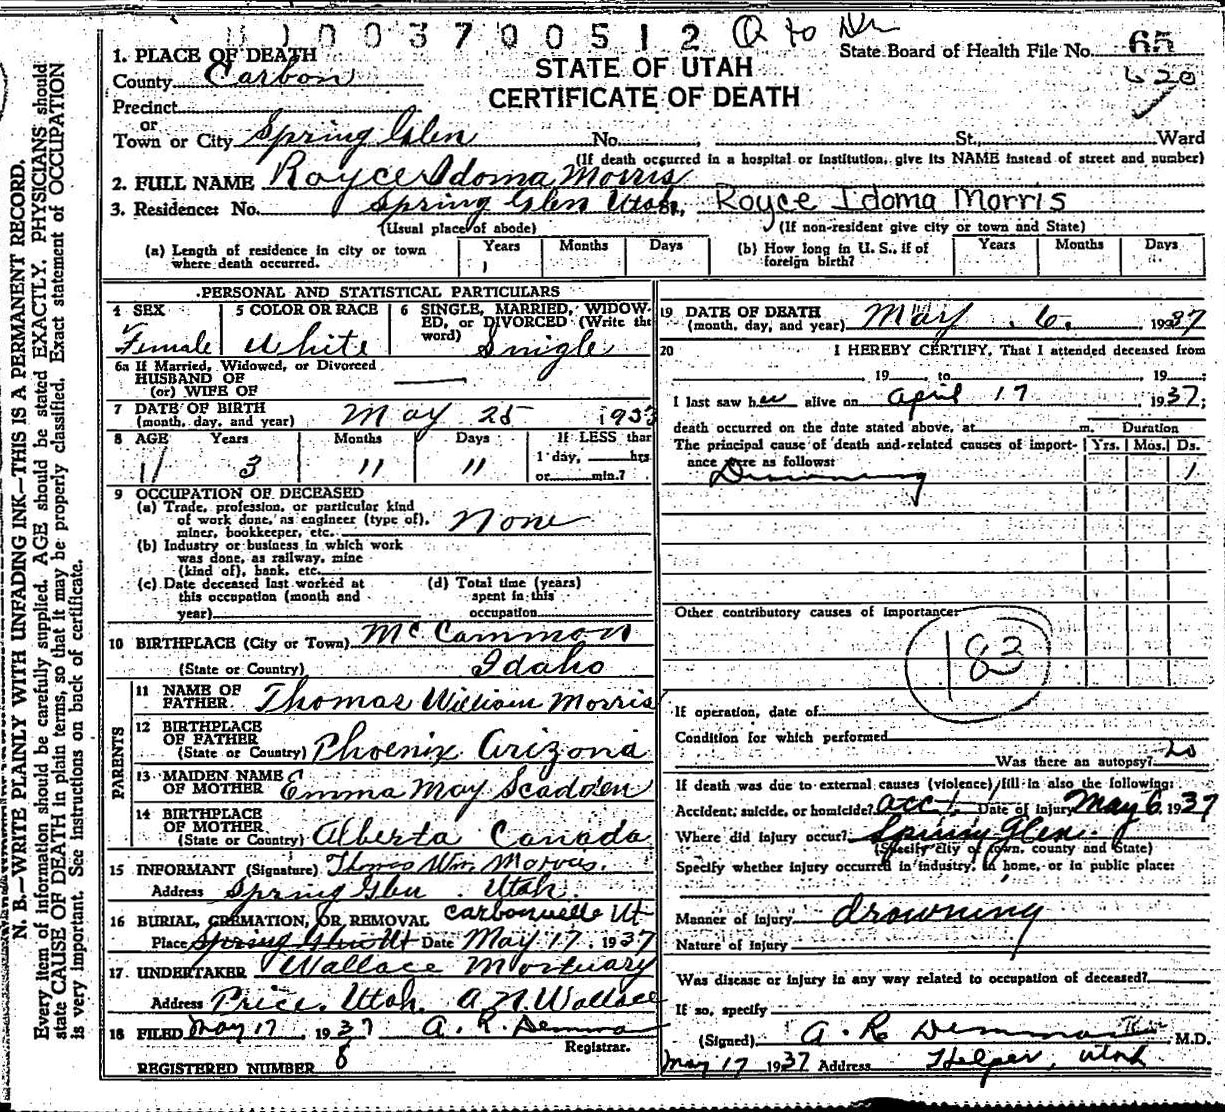 1003700512 Q to Dr
1. PLACE OF DEATH
State Board of Health File No. 65
County Carbon
STATE OF UTAH
620
Precinct
CERTIFICATE OF DEATH
or
Town or City Spring Glen No. St. Ward
(If death occurred in a hospital or institution, give its NAME instead of street and number)
2. FULL NAME Royce Idoma Morris
3. Residence: No. Spring Glen Utah St., Royce Idoma Morris
(Usual place of abode) (If non-resident give city or town and State)
(a) Length of residence in city or town where death occurred. Years Months Days
(b) How long in U. S., if of foreign birth? Years Months Days
PERSONAL AND STATISTICAL PARTICULARS
4 SEX 5 COLOR OR RACE 6 SINGLE, MARRIED, WIDOW-
ED, or DIVORCED (Write the
word)
Female White Single
6a If Married, Widowed, or Divorced
HUSBAND OF
(or) WIFE OF
7 DATE OF BIRTH
(month, day, and year) May 25 1933
8 AGE Years Months Days If LESS than
1 day, hrs
3 11 11 or min.?
9 OCCUPATION OF DECEASED
(a) Trade, profession, or particular kind
of work done, as engineer (type of),
miner, bookkeeper, etc. None
(b) Industry or business in which work
was done, as railway, mine
(kind of), bank, etc.
(c) Date deceased last worked at (d) Total time (years)
this occupation (month and spent in this
year) occupation
10 BIRTHPLACE (City or Town) McCammon
(State or Country) Idaho
PARENTS
11 NAME OF
FATHER Thomas William Morris
12 BIRTHPLACE
OF FATHER
(State or Country) Phoenix Arizona
13 MAIDEN NAME
OF MOTHER Emma May Scadden
14 BIRTHPLACE
OF MOTHER
(State or Country) Alberta Canada
15 INFORMANT (Signature) Thomas Wm. Morris.
Address Spring Glen Utah.
16 BURIAL, CREMATION, OR REMOVAL Carbonville Ut
Place Spring Glen Ut Date May 17, 1937
17 UNDERTAKER Wallace Mortuary
Address Price, Utah. A N Wallace
18 FILED May 17, 1937 A. R. Demman
Registrar.
REGISTERED NUMBER 8
19 DATE OF DEATH
(month, day, and year) May 6, 1937
20 I HEREBY CERTIFY, That I attended deceased from
19 to 19 ;
I last saw her alive on April 17 1937;
death occurred on the date stated above, at m. Duration
The principal cause of death and related causes of import- Yrs. Mos. Ds.
ance were as follows:
Drowning 1
Other contributory causes of importance:
183
If operation, date of
Condition for which performed
Was there an autopsy? no
If death was due to external causes (violence) fill in also the following:
Accident, suicide, or homicide? acc't. Date of injury May 6 1937
Where did injury occur? Spring Glen.
(Specify city or town, county and State)
Specify whether injury occurred in industry, in home, or in public place:
Manner of injury drowning
Nature of injury
Was disease or injury in any way related to occupation of deceased?
If so, specify
(Signed) A. R. Demman M.D.
May 17 1937 Address Helper, Utah
N. B.—WRITE PLAINLY WITH UNFADING INK—THIS IS A PERMANENT RECORD.
Every item of information should be carefully supplied. AGE should be stated EXACTLY. PHYSICIANS should
state CAUSE OF DEATH in plain terms, so that it may be properly classified. Exact statement of OCCUPATION
is very important. See instructions on back of certificate.